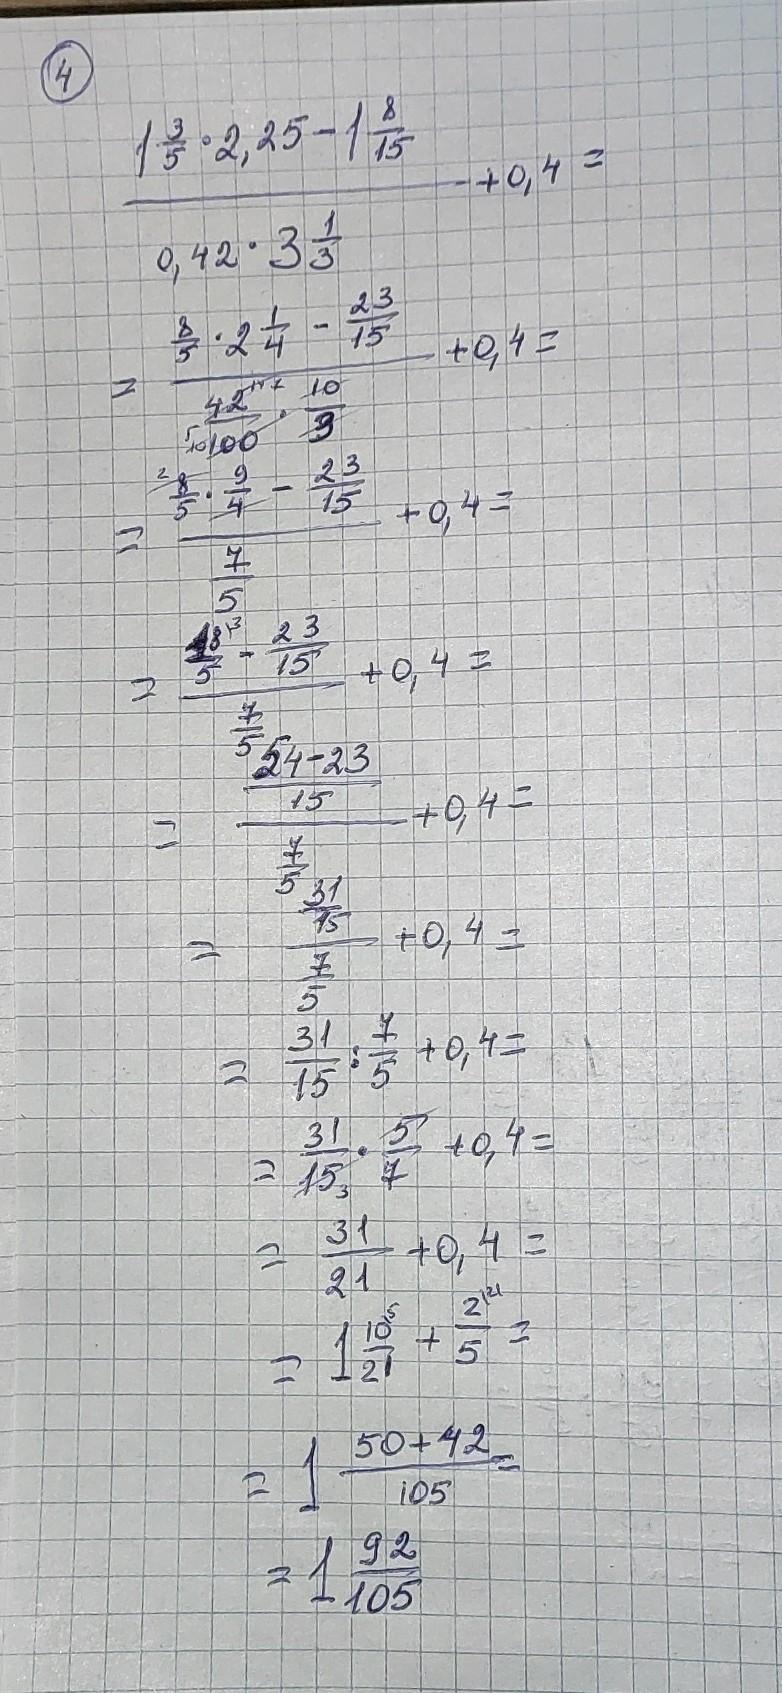 4
1 3/5 · 2,25 - 1 8/15
+ 0,4 =
0,42 · 3 1/3
8/5 · 2 1/4 - 23/15
= + 0,4 =
42/100 · 10/3
8/5 · 9/4 - 23/15
= + 0,4 =
7/5
18/5 - 23/15
= + 0,4 =
7/5
54-23
15
= + 0,4 =
7/5
31/15
= + 0,4 =
7/5
= 31/15 : 7/5 + 0,4 =
= 31/15 · 5/7 + 0,4 =
= 31/21 + 0,4 =
= 1 10/21 + 2/5 =
= 1 50+42/105 =
= 1 92/105